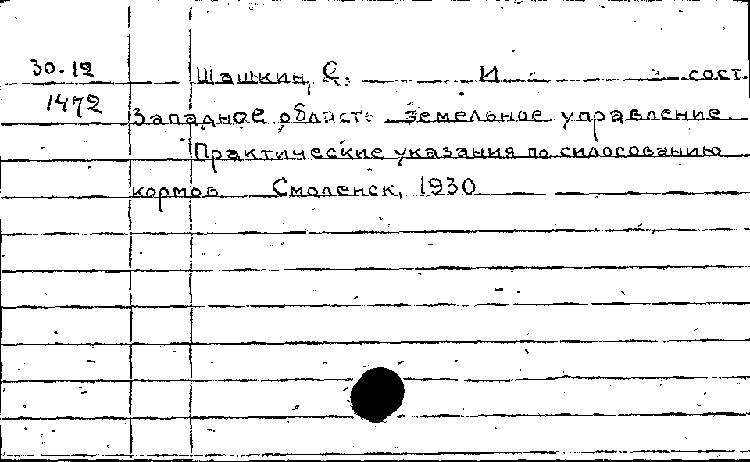 30-12 Шашкин, С. И сост.
1472 Западное область земельное управление
Практические указания по силосованию
кормов Смоленск, 1930